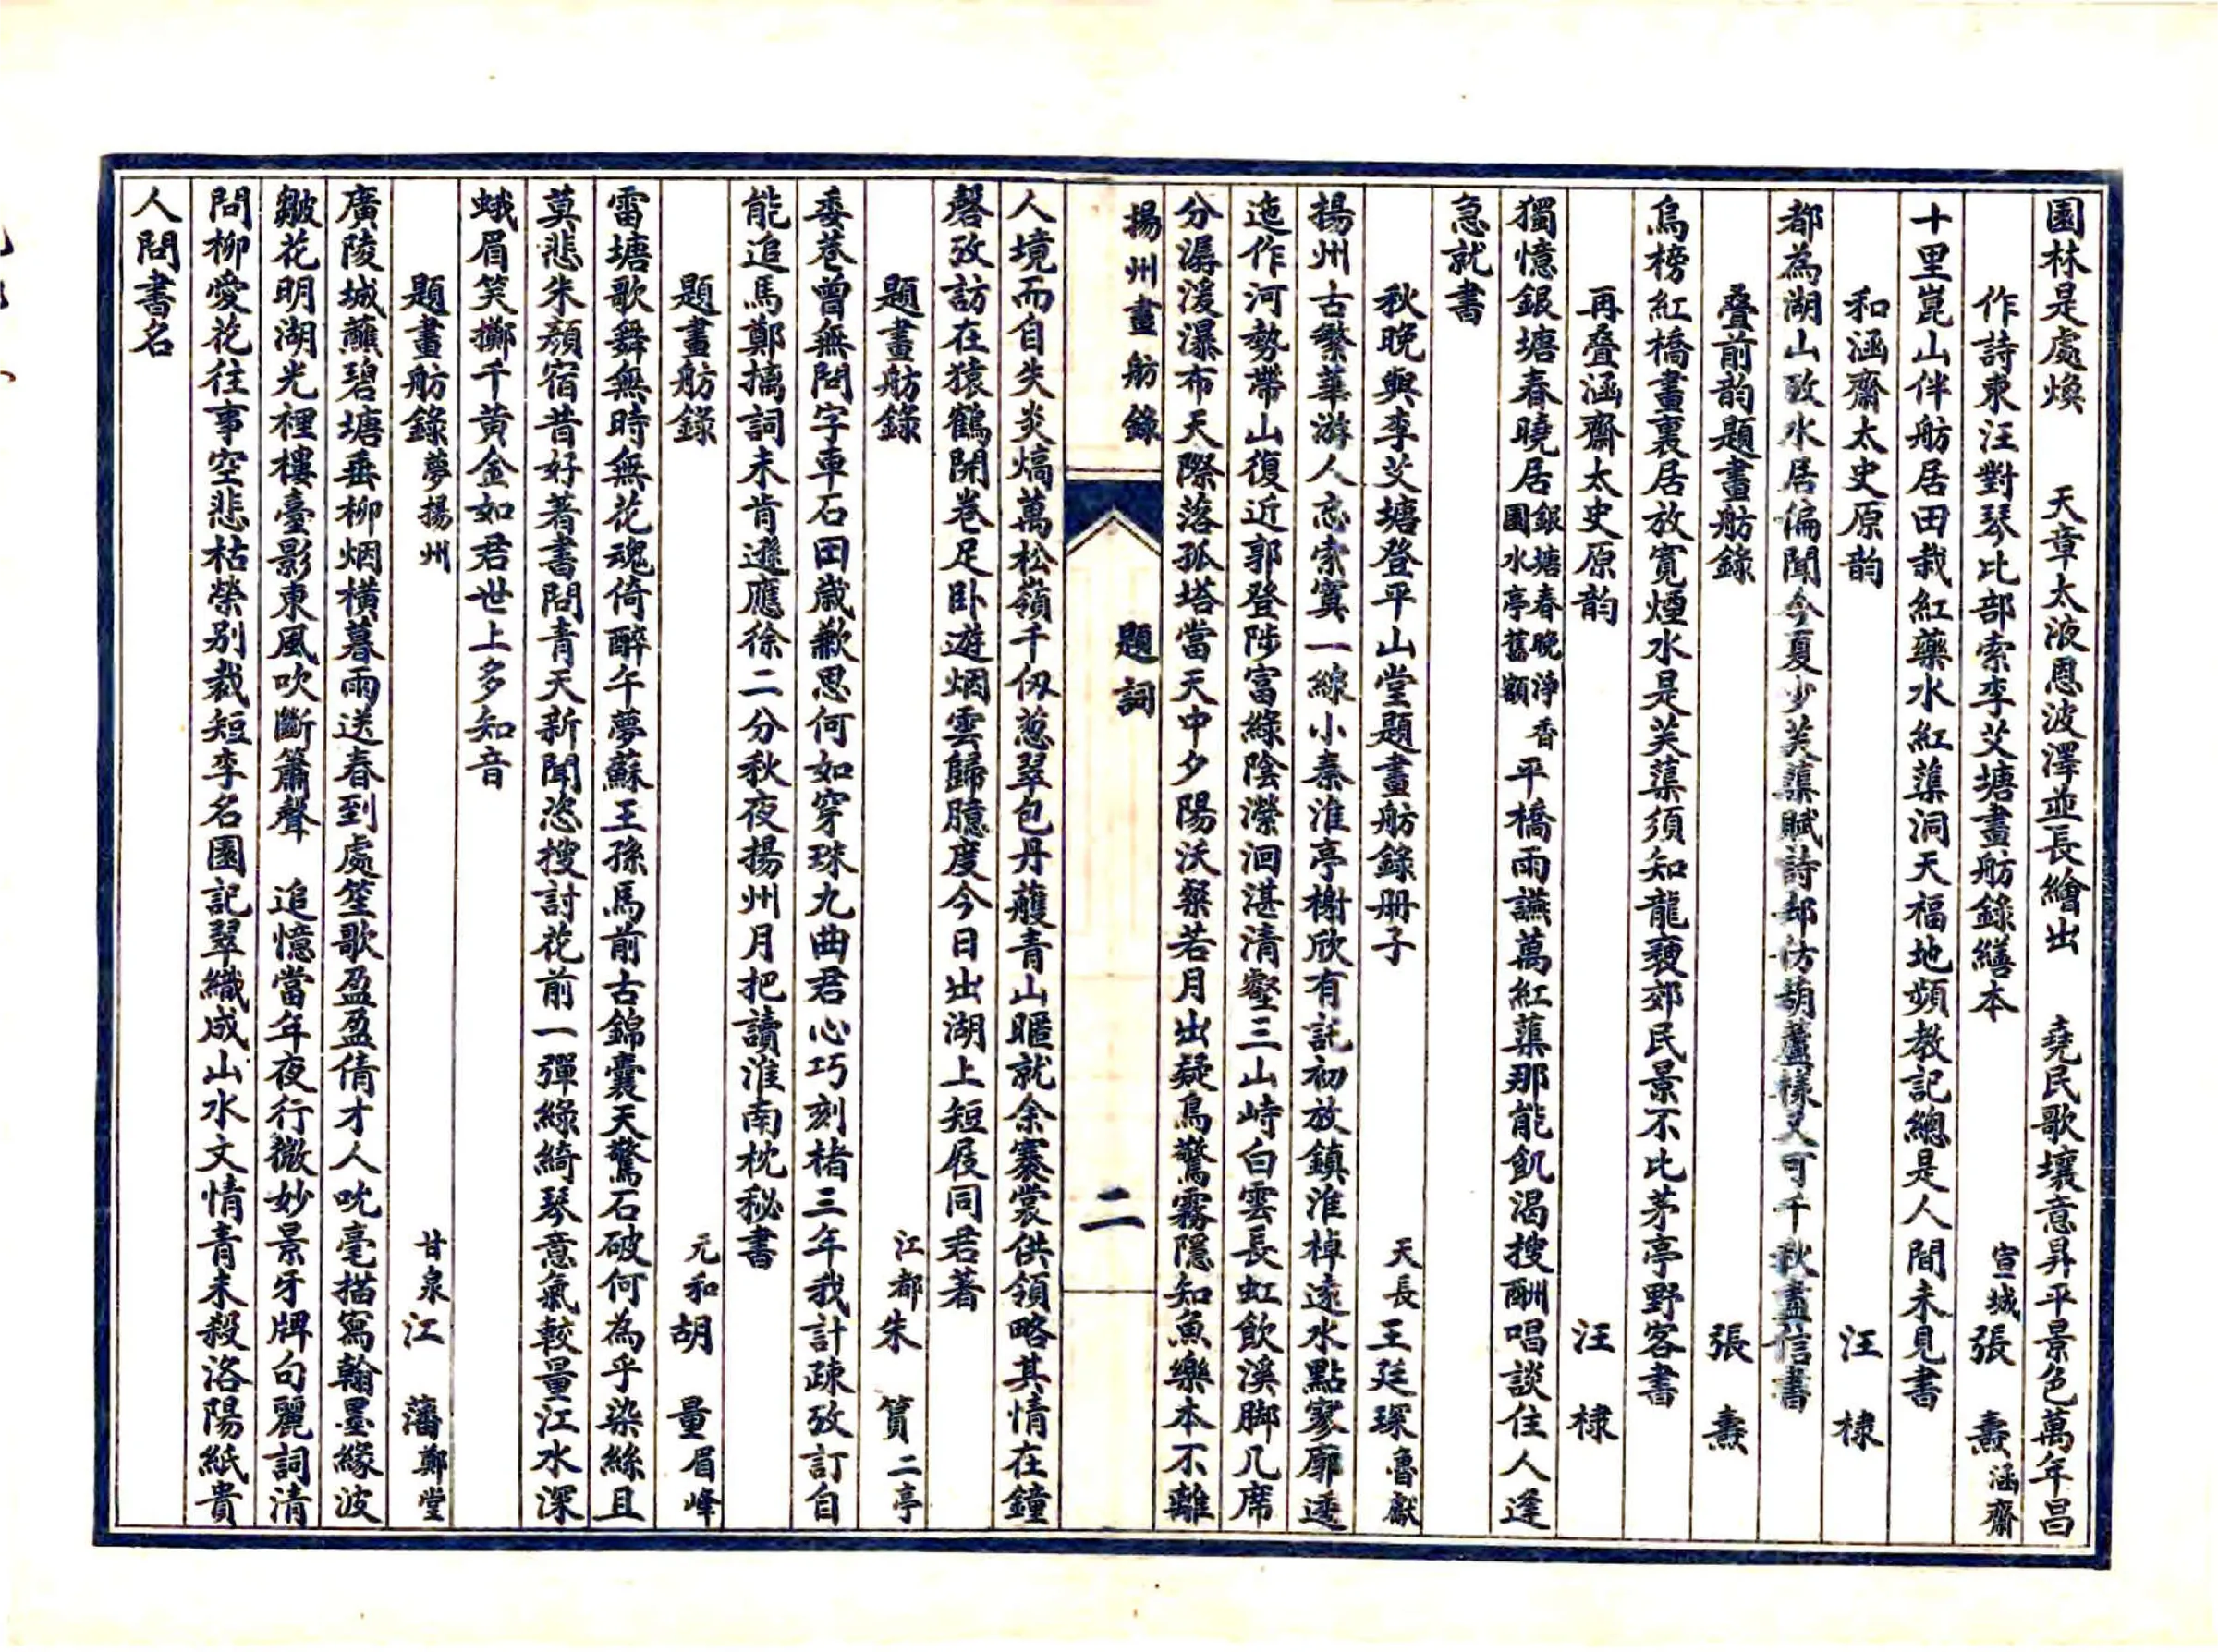 園林是處煥　天章太液恩波澤並長繪出　堯民歌壤意昇平景色萬年昌
作詩柬汪對琴比部索李艾塘畫舫錄繕本　宣城張　燾涵齋
十里崑山伴舫居田栽紅藥水紅蕖洞天福地頻教記總是人間未見書
和涵齋太史原韵　汪　棣
都為湖山致水居偏聞今夏少芙蕖賦詩却仿葫蘆樣又可千秋盡信書
叠前韵題畫舫錄　張　燾
烏榜紅橋畫裏居放寬煙水是芙蕖須知龍褎郊民景不比茅亭野客書
再叠涵齋太史原韵　汪　棣
獨憶銀塘春曉居銀塘春晚淨香園水亭舊額平橋雨讌萬紅蕖那能飢渴搜酬唱談住人逢
急就書
秋晚與李艾塘登平山堂題畫舫錄册子　天長王廷琛魯獻
揚州古繁華游人恋索寞一線小秦淮亭榭欣有託初放鎮淮棹遠水點寥廓逶
迤作河勢帶山復近郭登陟富綠陰瀠洄湛清壑三山峙白雲長虹飲溪脚几席
分潺湲瀑布天際落孤塔當天中夕陽沃粲若月出疑鳥驚霧隱知魚樂本不離
揚州畫舫錄　題詞　二
人境而自失炎熇萬松嶺千仞葱翠包丹雘青山暱就余褰裳供領略其情在鐘
磬攷訪在猿鶴開卷足卧遊烟雲歸臆度今日出湖上短屐同君著
題畫舫錄　江都朱　篔二亭
委巷曾無問字車石田歲歉思何如穿珠九曲君心巧刻楮三年我計疎攷訂自
能追馬鄭摛詞未肯遜應徐二分秋夜揚州月把讀淮南枕秘書
題畫舫錄　元和胡　量眉峰
雷塘歌舞無時無花魂倚醉午夢蘇王孫馬前古錦囊天驚石破何為乎染絲且
莫悲朱顏宿昔好著書問青天新聞恣搜討花前一彈綠綺琴意氣較量江水深
蛾眉笑擲千黃金如君世上多知音
題畫舫錄夢揚州　甘泉江　藩鄭堂
廣陵城蘸碧塘垂柳烟横暮雨送春到處笙歌盈盈倩才人吮毫描寫翰墨緣波
皺花明湖光裡樓臺影東風吹斷簫聲　追憶當年夜行微妙景牙牌句麗詞清
問柳愛花往事空悲枯榮別裁短李名園記翠織成山水文情青未殺洛陽紙貴
人問書名